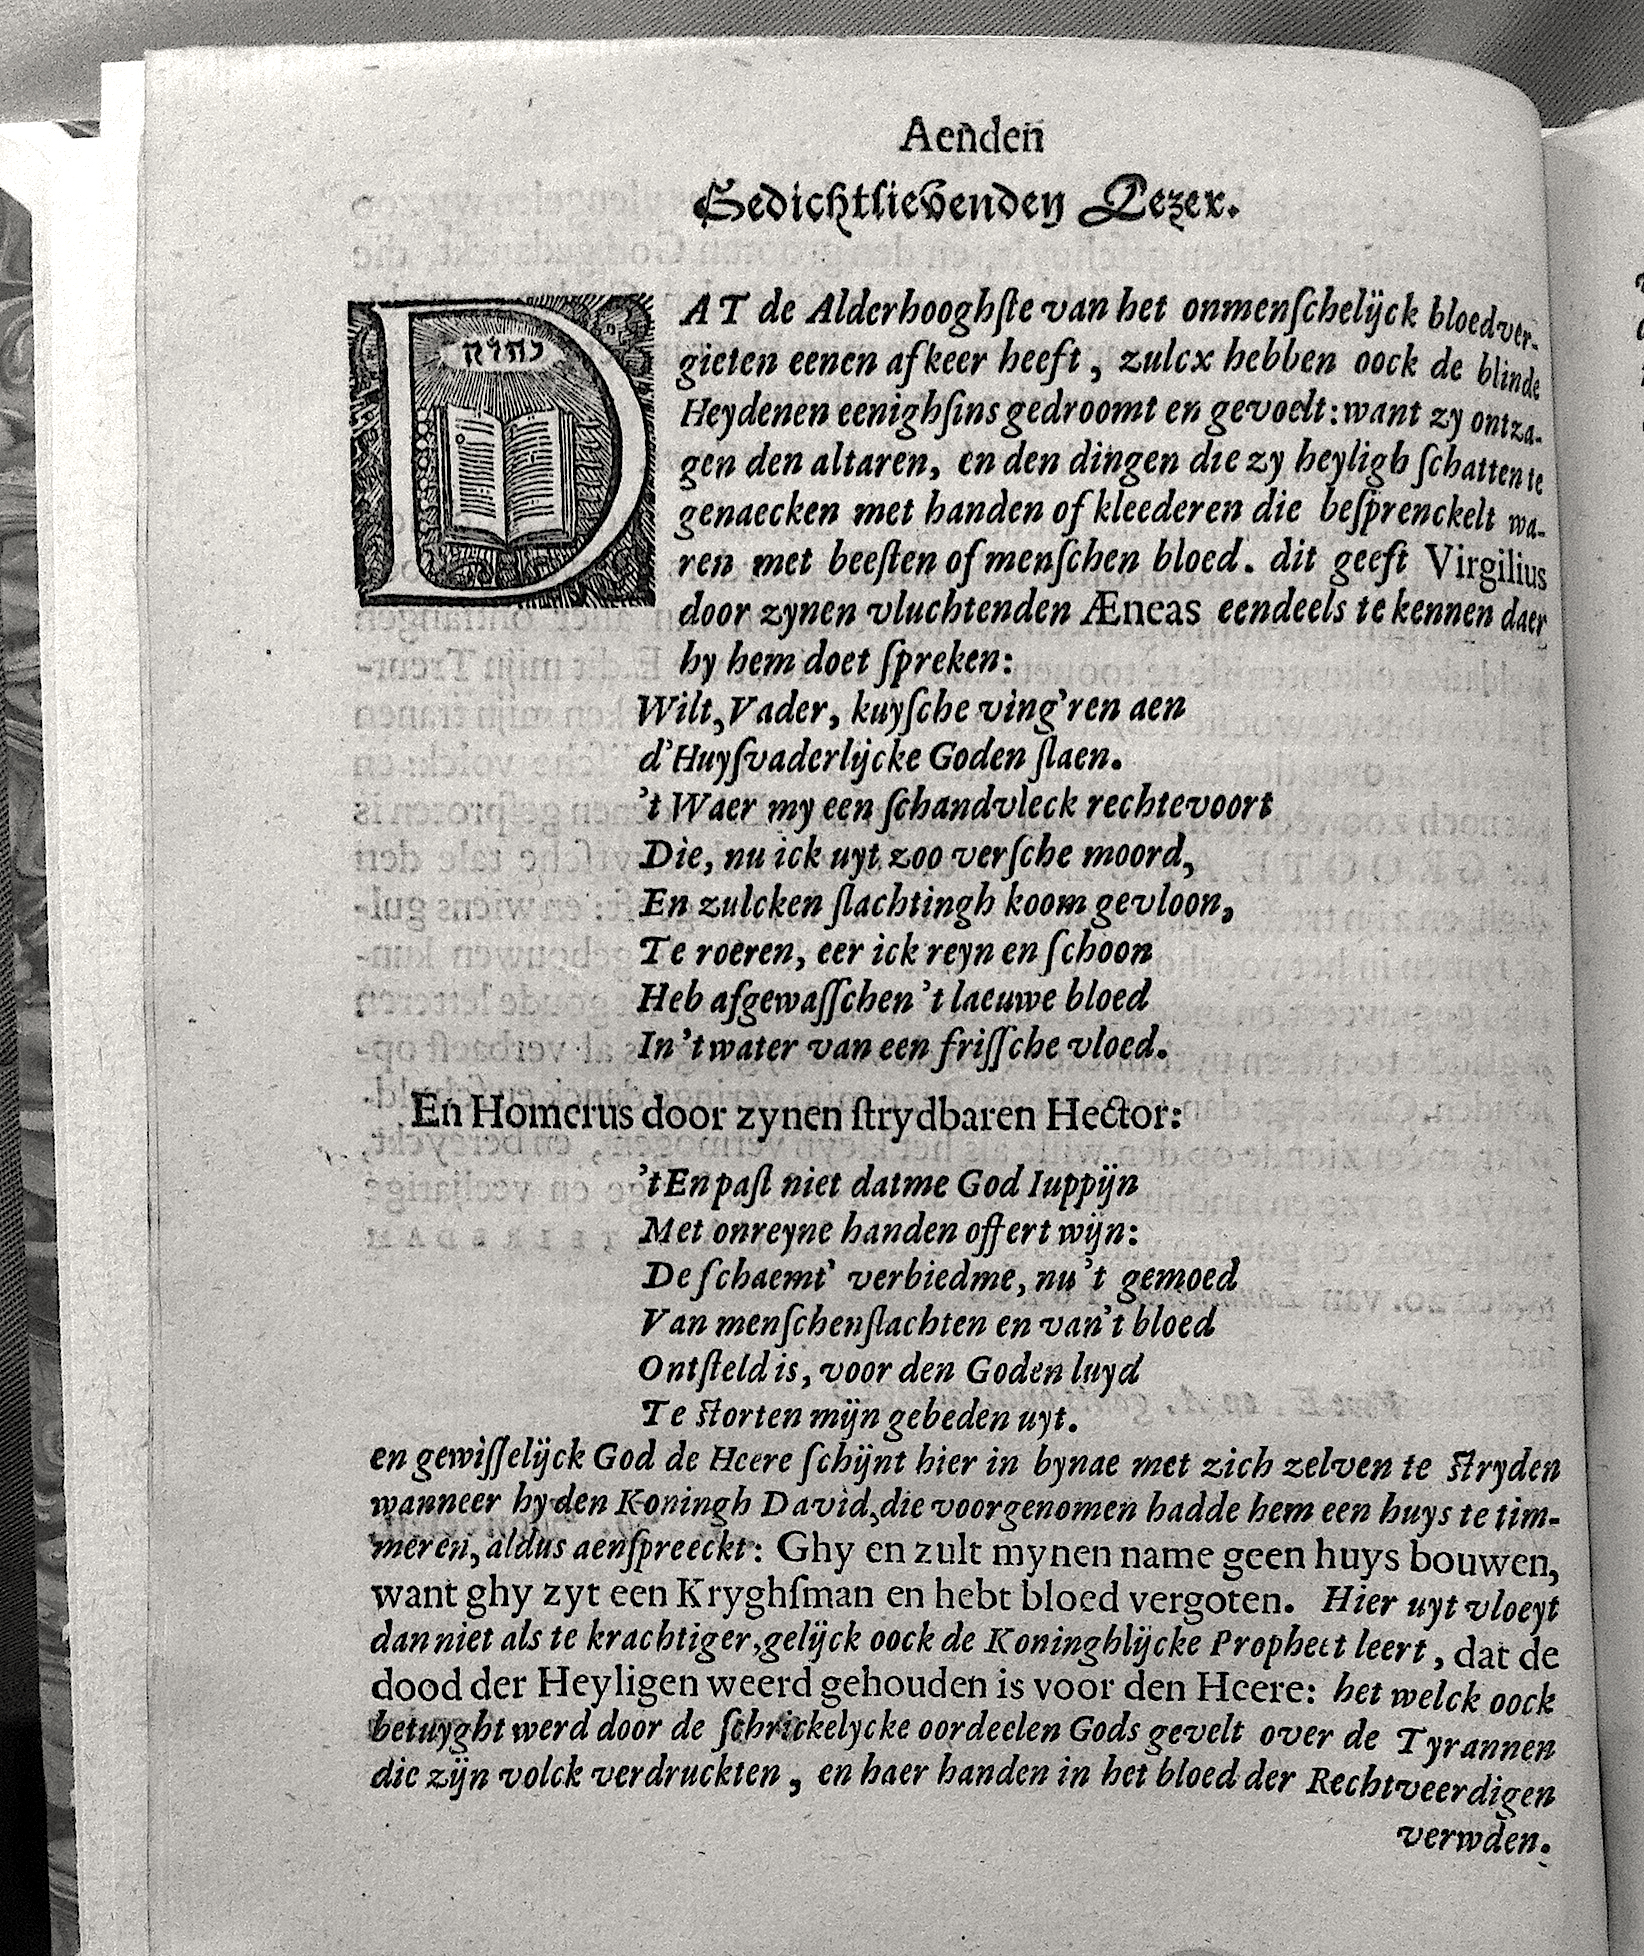 Aenden
Gedichtlievenden Lezer.
יהוה
DAT de Alderhooghſte van het onmenſchelijck bloedver-
gieten eenen afkeer heeft, zulcx hebben oock de blinde
Heydenen eenighſins gedroomt en gevoelt: want zy ontza-
gen den altaren, en den dingen die zy heyligh ſchatten te
genaecken met handen of kleederen die beſprenckelt wa-
ren met beeſten of menſchen bloed. dit geeft Virgilius
door zynen vluchtenden Æneas eendeels te kennen daer
hy hem doet ſpreken:
Wilt, Vader, kuyſche ving'ren aen
d'Huyſvaderlijcke Goden ſlaen.
't Waer my een ſchandvleck rechtevoort
Die, nu ick uyt zoo verſche moord,
En zulcken ſlachtingh koom gevloon,
Te roeren, eer ick reyn en ſchoon
Heb afgewaſſchen 't laeuwe bloed
In 't water van een friſſche vloed.
En Homerus door zynen ſtrydbaren Hector:
't En paſt niet datme God Iuppijn
Met onreyne handen offert wijn:
De ſchaemt' verbiedme, nu 't gemoed
Van menſchenſlachten en van 't bloed
Ontſteld is, voor den Goden luyd
Te ſtorten mijn gebeden uyt.
en gewiſſelijck God de Heere ſchijnt hier in bynae met zich zelven te ſtryden
wanneer hy den Koningh David, die voorgenomen hadde hem een huys te tim-
meren, aldus aenſpreeckt: Ghy en zult mynen name geen huys bouwen,
want ghy zyt een Kryghſman en hebt bloed vergoten. Hier uyt vloeyt
dan niet als te krachtiger, gelijck oock de Koninghlijcke Propheet leert, dat de
dood der Heyligen weerd gehouden is voor den Heere: het welck oock
betuyght werd door de ſchrickelycke oordeelen Gods gevelt over de Tyrannen
die zijn volck verdruckten, en haer handen in het bloed der Rechtveerdigen
verwden.